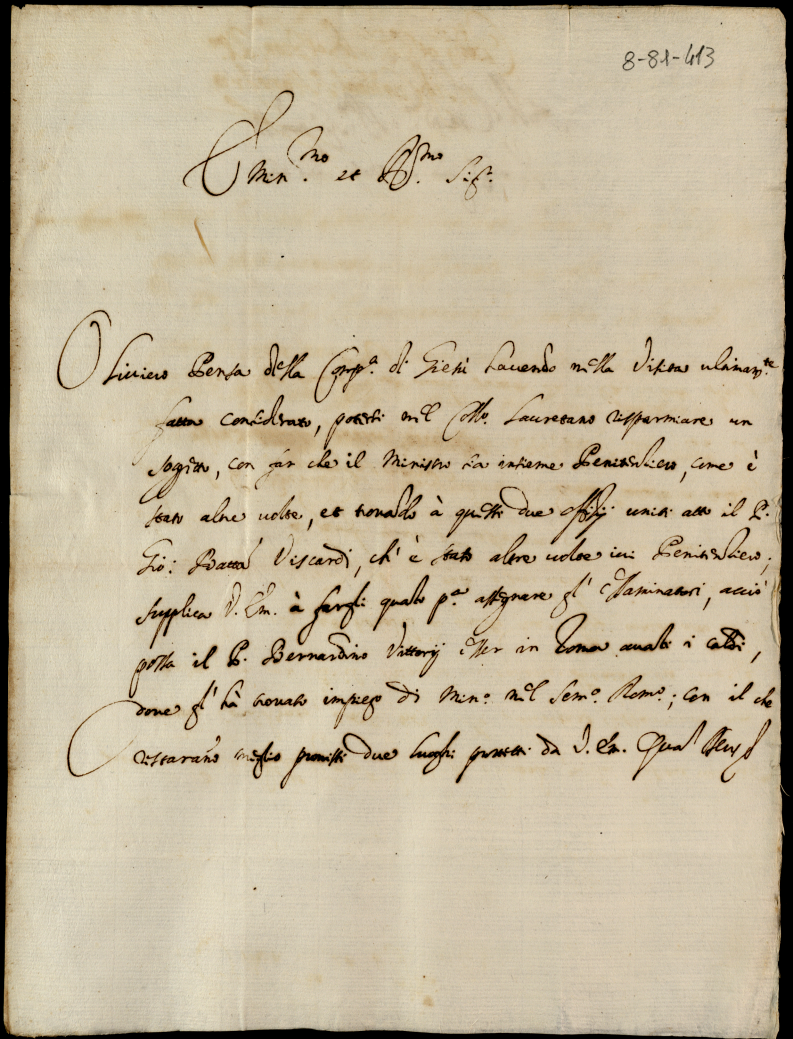 8-81-413
Emin.mo et R.mo Sig.r
Oliviero Pensa della Comp.a di Giesù havendo nella Visita ultimam.te
fatta considerato, potersi nel Coll.o Lauretano risparmiare un
sogetto, con far che il Ministro sia insieme Penitentiero, come è
stato altre volte, et trovando à questi due offitij uniti atto il P.
Gio: Batta Viscardi, ch' è stato altre volte ivi Penitentiero;
supplica V. Em. à fargli quanto p.a assegnare gl' essaminatori, acciò
possa il P. Bernardino Vittorij esser in Roma avanti i caldi,
dove gl' hà trovato impiego di Min.o nel Sem.o Rom.o; con il che
restarano meglio provisti due luoghi protetti da V. Em. Qual Deus